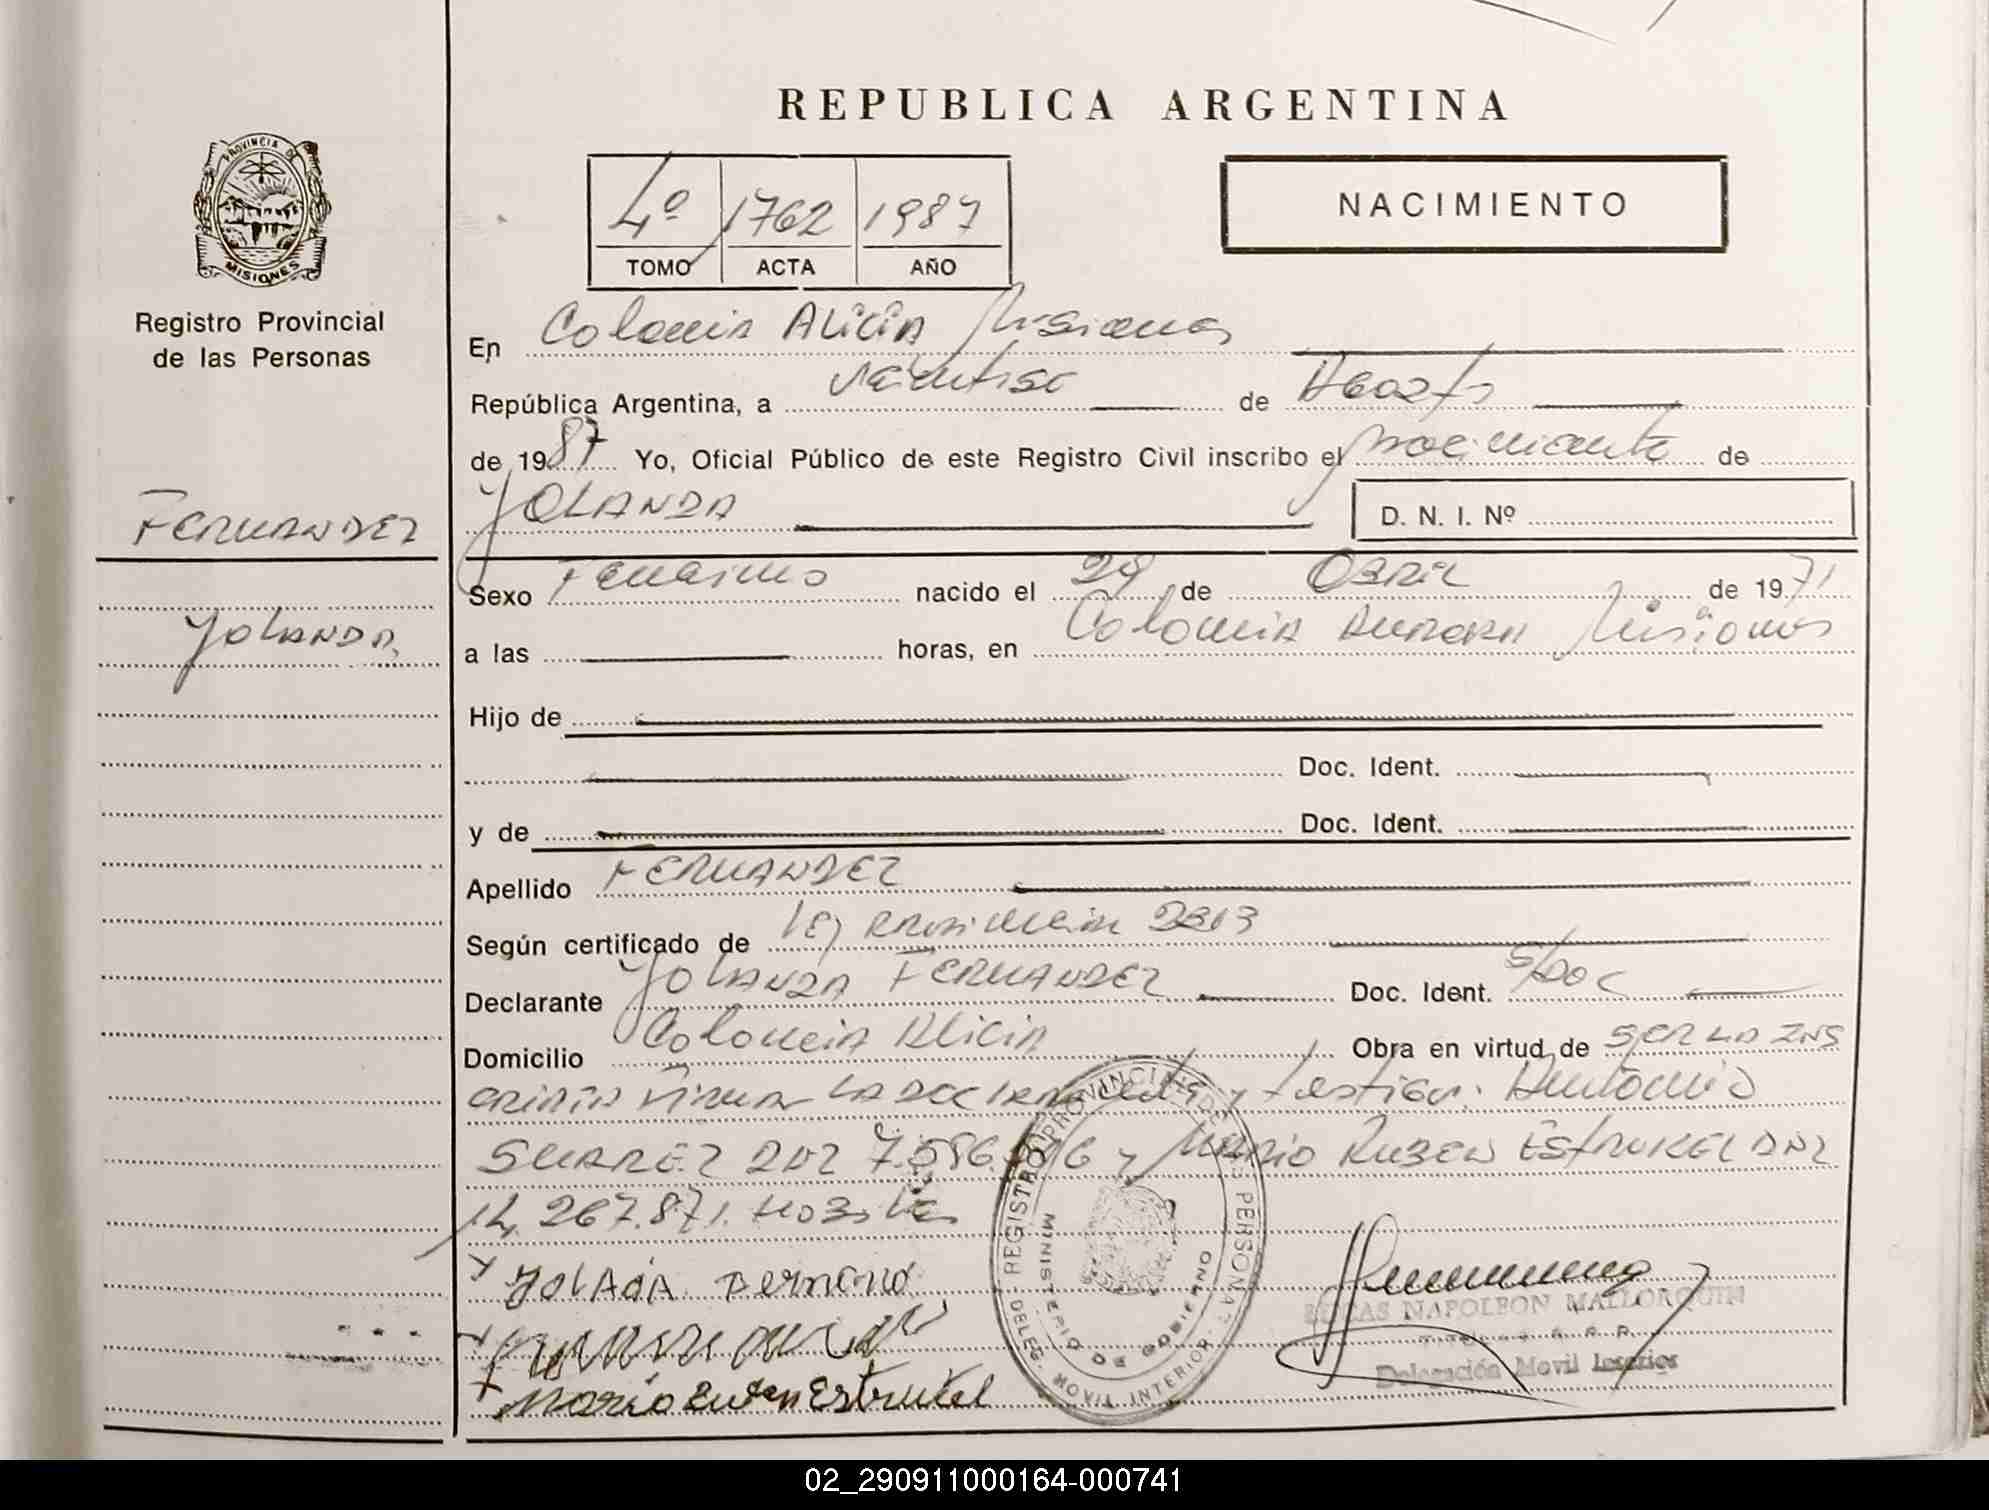 REPUBLICA ARGENTINA
PROVINCIA DE
MISIONES
Registro Provincial
de las Personas
4º 1762 1987
TOMO ACTA AÑO
NACIMIENTO
En Colonia Alicia Misiones
República Argentina, a veintise de Agosto
de 1987 Yo, Oficial Público de este Registro Civil inscribo el nacimiento de
YOLANDA D. N. I. Nº
FERNANDEZ
Yolanda
Sexo Femenino nacido el 29 de Abril de 1971
a las horas, en Colonia Aurora Misiones
Hijo de
Doc. Ident.
y de Doc. Ident.
Apellido FERNANDEZ
Según certificado de Ley 2313
Declarante YOLANDA FERNANDEZ Doc. Ident. S/DOC
Domicilio Colonia Alicia Obra en virtud de SER LA INS
CRIPTA FIRMAN LA DECLARANTE y testigos: Antonio
SUAREZ DNI y Mario RUBEN ESTRUKEL DNI
14.267.871.
YOLADA
Mario Ruben Estrukel
REGISTRO PROVINCIAL DE LAS PERSONAS
MINISTERIO DE GOBIERNO
DELEG. MOVIL INTERIOR
LUCAS NAPOLEON MALLORQUIN
Delegación Movil Interior
02_290911000164-000741